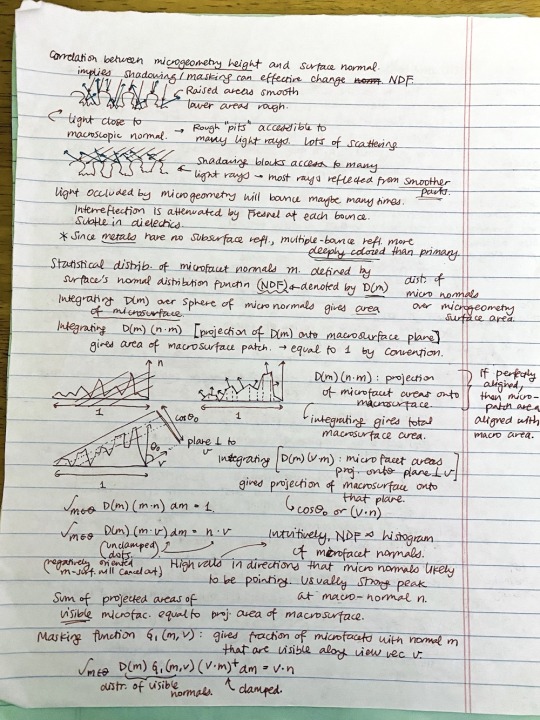 Correlation between microgeometry height and surface normal
implies shadowing/masking can effective change NDF
Raised areas smooth
lower areas rough.
light close to
macroscopic normal.
→ Rough "pits" accessible to
many light rays. Lots of scattering
Shadowing blocks access to many
light rays → most rays reflected from smoother
parts.
Light occluded by microgeometry will bounce maybe many times.
Interreflection is attenuated by Fresnel at each bounce.
Subtle in dielectrics.
* Since metals have no subsurface refl., multiple-bounce refl. more
deeply colored than primary.
Statistical distrib. of microfacet normals m. defined by
surface's normal distribution functin (NDF) ← denoted by D(m)
distr. of
micro normals
over microgeometry
surface area.
Integrating D(m) over sphere of micronormals gives area
of microsurface.
Integrating D(m)(n·m) [projection of D(m) onto macrosurface plane]
gives area of macrosurface patch. → equal to 1 by convention.
n
1
1
D(m)(n·m): projection
of microfacet areas onto
macrosurface.
integrating gives total
macrosurface area.
If perfectly
aligned,
then micro-
patch area
aligned with
macro area.
cosθ₀
θ₀
v
plane ⊥ to
v
1
Integrating [D(m)(v·m): microfacet areas
proj. onto plane ⊥ v]
gives projection of macrosurface onto
that plane.
cosθ₀ or (v·n)
∫m∈Θ D(m)(m·n) dm = 1.
∫m∈Θ D(m)(m·v) dm = n·v
(unclamped)
dots.
(negatively oriented
m-surf. will cancel out)
Intuitively, NDF ∝ histogram
of microfacet normals.
High vals in directions that micro normals likely
to be pointing. Usually strong peak
at macro-normal n.
Sum of projected areas of
visible microfac. equal to proj. area of macrosurface.
Masking function G₁(m,v): gives fraction of microfacets with normal m
that are visible along view vec v.
∫m∈Θ D(m) G₁(m,v) (v·m)⁺ dm = v·n
distr. of visible
normals.
clamped.